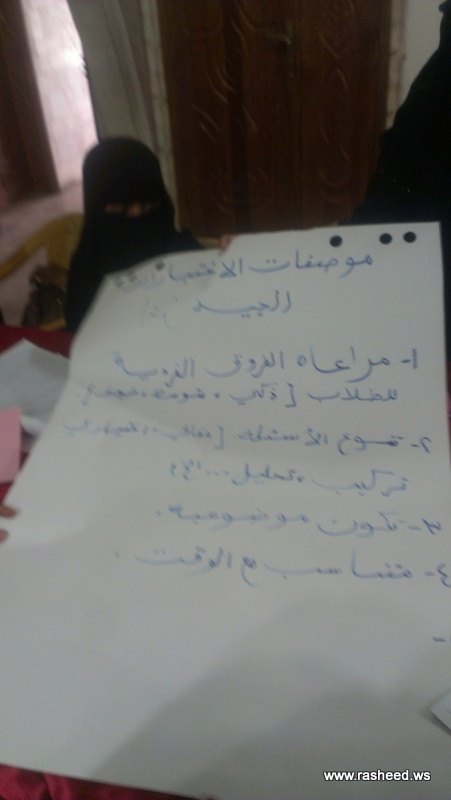 موصفات الاختبار
الجيد
1- مراعاه الفروق الفردية
للطلاب [ذكي،
2- تنوع الأسئلة
تركيب، تحليل...الخ
3- تكون موضوعية.
4- تتناسب مع الوقت.
-
www.rasheed.ws